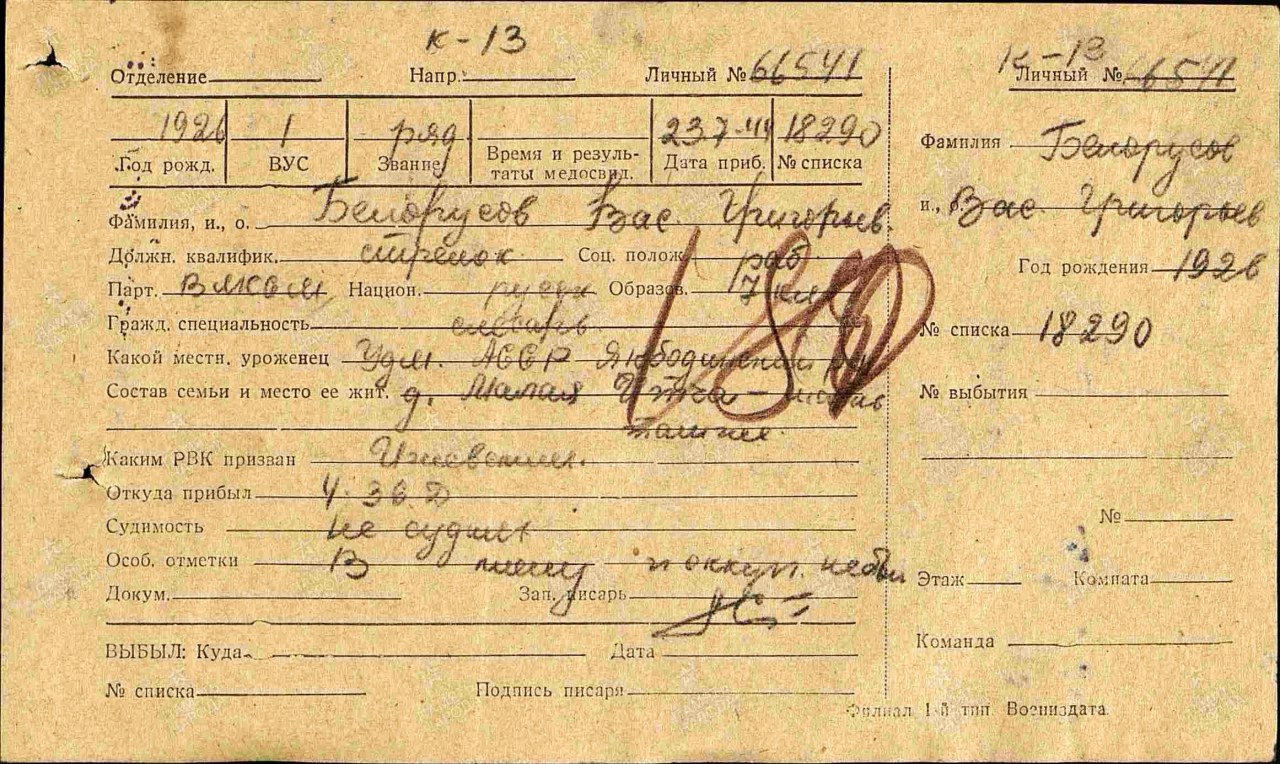 К-13
Отделение Напр. Личный № 66541
1926 1 ряд 23.7.44 18290
Год рожд. ВУС Звание Время и резуль-таты медосвид. Дата приб. № списка
Фамилия, и., о. Белорусов Вас. Григорьев.
Должн. квалифик. стрелок Соц. полож. раб
Парт. Влксм Национ. русск Образов. 7 кл
Гражд. специальность слесарь
Какой местн. уроженец Удм. АССР
Состав семьи и место ее жит. д. Малая Итча —
Каким РВК призван Ижевским.
Откуда прибыл
Судимость не судим
Особ. отметки В плену и оккуп. не был
Докум. Зап. писарь
ВЫБЫЛ: Куда Дата
№ списка Подпись писаря
180
К-13
Личный № 66541
Фамилия Белорусов
и., о. Вас. Григорьев
Год рождения 1926
№ списка 18290
№ выбытия
№
Этаж Комната
Команда
Филиал 1-й тип. Воениздата